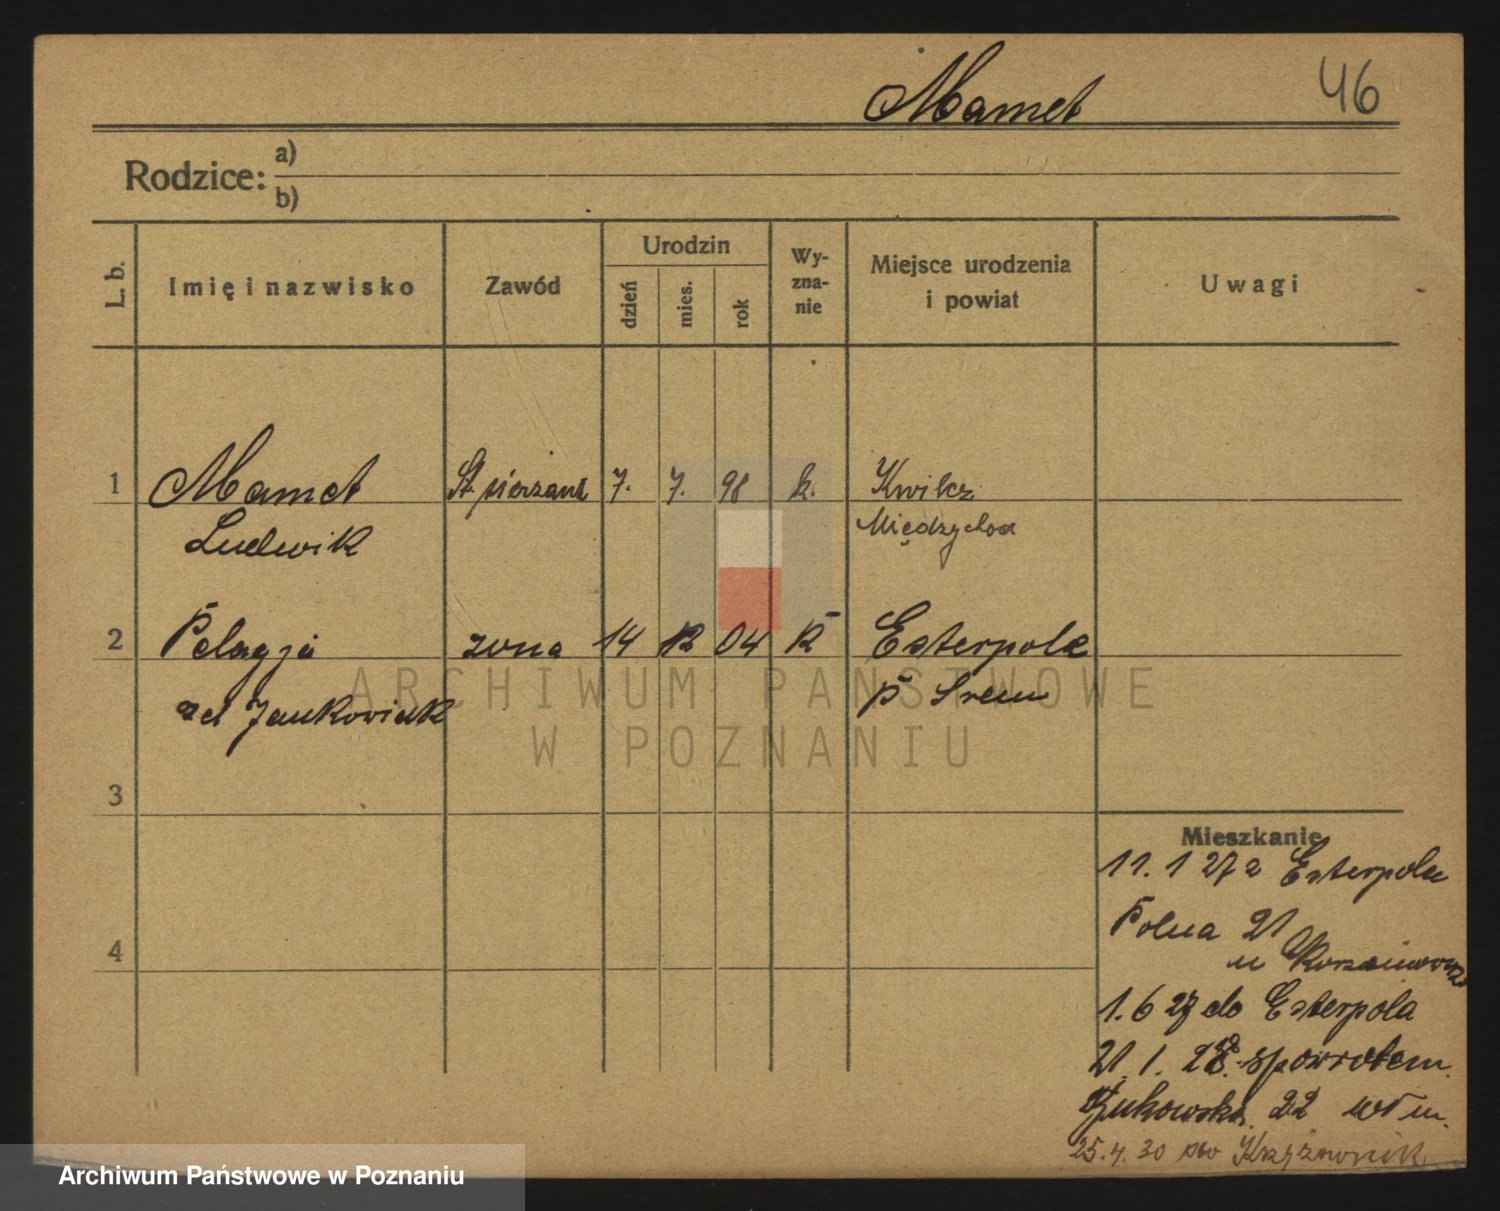 Mamet
46
Rodzice: a)
b)
L. b.
Imię i nazwisko
Zawód
Urodzin
dzień
mies.
rok
Wy-
zna-
nie
Miejsce urodzenia
i powiat
Uwagi
1 Mamet St. sierżant 7. 7. 98 k. Kwilcz
Ludwik Międzychod
2 Pelagja żona 14 12 04 k Esterpole
zd Jankowiak p Srem
3
4
Mieszkanie
11. 1 27 z Esterpola
Polna 21
u
1. 6 27 do Esterpola
21. 1. 28. spowrotem.
22 wł m.
25.4.30 Krzyżownik
ARCHIWUM PAŃSTWOWE
W POZNANIU
Archiwum Państwowe w Poznaniu